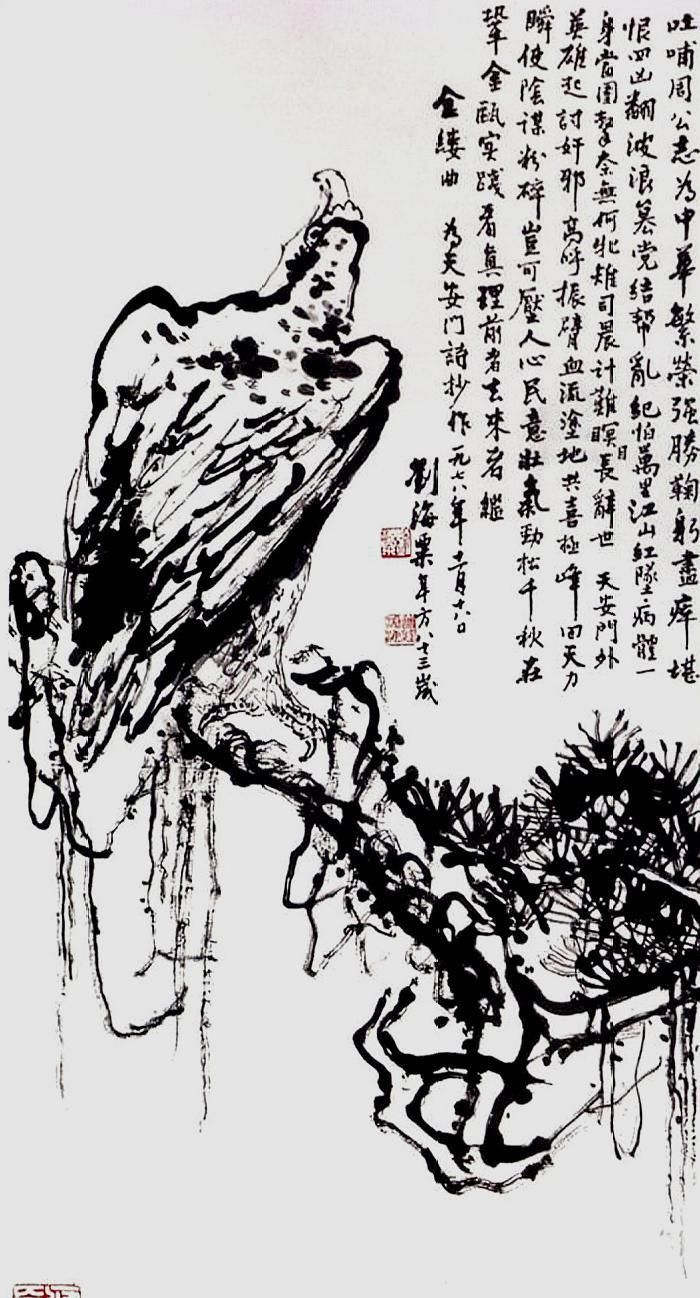 吐哺周公志为中華繁荣强勝鞠躬盡瘁堪
恨四凶翻波浪篡党结帮亂纪怕萬里江山红墜病體一
身當圍擊奈無何牝雉司晨计難瞑長辭世 天安門外
目
英雄起討奸邪高呼振臂血流塗地共喜極峰回天力
瞬使陰谋粉碎豈可壓人心民意壯氣勁松千秋在
鞏金甌实踐看真理前者去来者繼
金縷曲 为天安门詩抄作 一九七八年十一月十八日
劉海粟年方八十三歲